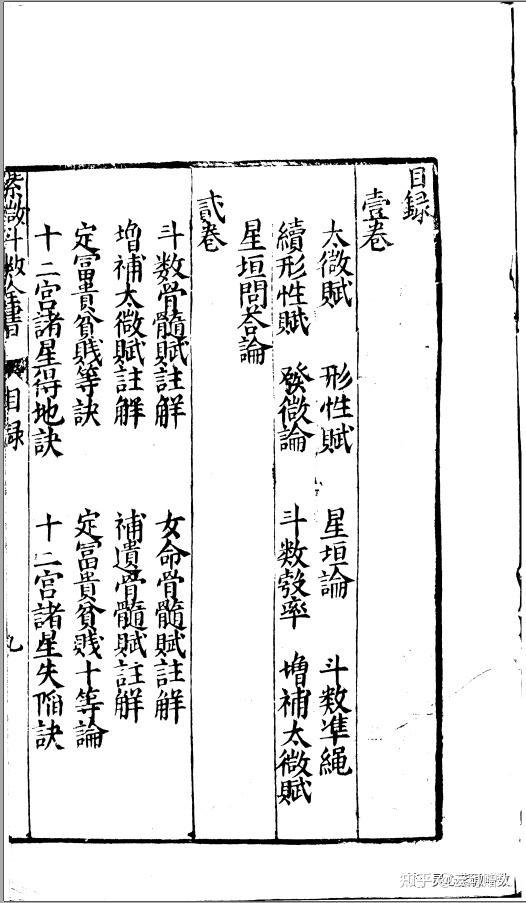 目録
壹卷
太微賦 形性賦 星垣論 斗数凖繩
續形性賦 發微論 斗数彀率 増補太微賦
星垣問荅論
貳卷
斗数骨髓賦註觧 女命骨髓賦註觧
増補太微賦註觧 補遺骨髓賦註觧
定冨貴貧賤等訣 定冨貴貧賤十等論
十二宫諸星得地訣 十二宫諸星失陷訣
紫微斗数全書 目録 九
知乎